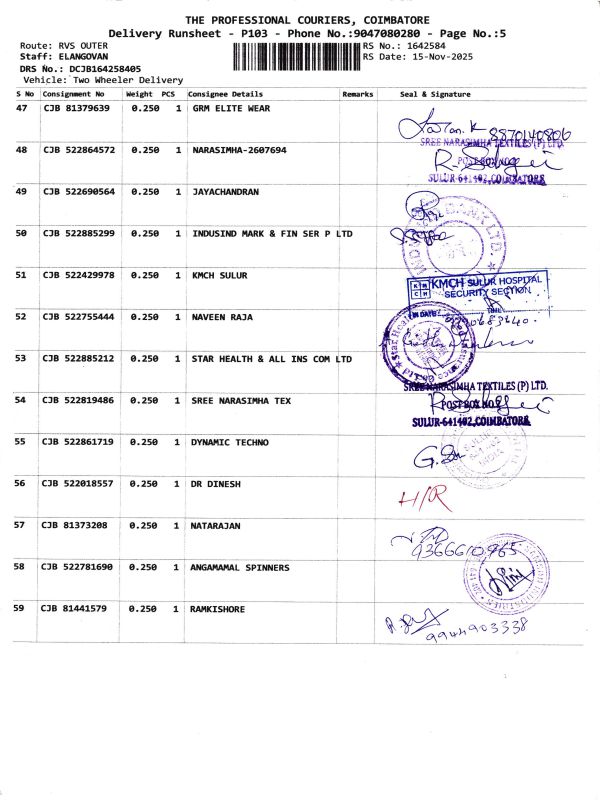 THE PROFESSIONAL COURIERS, COIMBATORE
Delivery Runsheet - P103 - Phone No.:9047080280 - Page No.:5
Route: RVS OUTER RS No.: 1642584
Staff: ELANGOVAN RS Date: 15-Nov-2025
DRS No.: DCJB164258405
Vehicle: Two Wheeler Delivery
S No Consignment No Weight PCS Consignee Details Remarks Seal & Signature
47 CJB 81379639 0.250 1 GRM ELITE WEAR
8870140806
SREE NARASIMHA TEXTILES (P) LTD.
48 CJB 522864572 0.250 1 NARASIMHA-2607694
POST BOX NO.
SULUR-641402, COIMBATORE
49 CJB 522690564 0.250 1 JAYACHANDRAN
50 CJB 522885299 0.250 1 INDUSIND MARK & FIN SER P LTD
INDUSIND BANK LTD.
51 CJB 522429978 0.250 1 KMCH SULUR
KMCH SULUR HOSPITAL
SECURITY SECTION
52 CJB 522755444 0.250 1 NAVEEN RAJA
IN DATE TIME
53 CJB 522885212 0.250 1 STAR HEALTH & ALL INS COM LTD
54 CJB 522819486 0.250 1 SREE NARASIMHA TEX
SREE NARASIMHA TEXTILES (P) LTD.
POST BOX NO.
SULUR-641402, COIMBATORE
55 CJB 522861719 0.250 1 DYNAMIC TECHNO
56 CJB 522018557 0.250 1 DR DINESH
H/R
57 CJB 81373208 0.250 1 NATARAJAN
9366610965
58 CJB 522781690 0.250 1 ANGAMAMAL SPINNERS
59 CJB 81441579 0.250 1 RAMKISHORE
9944903338